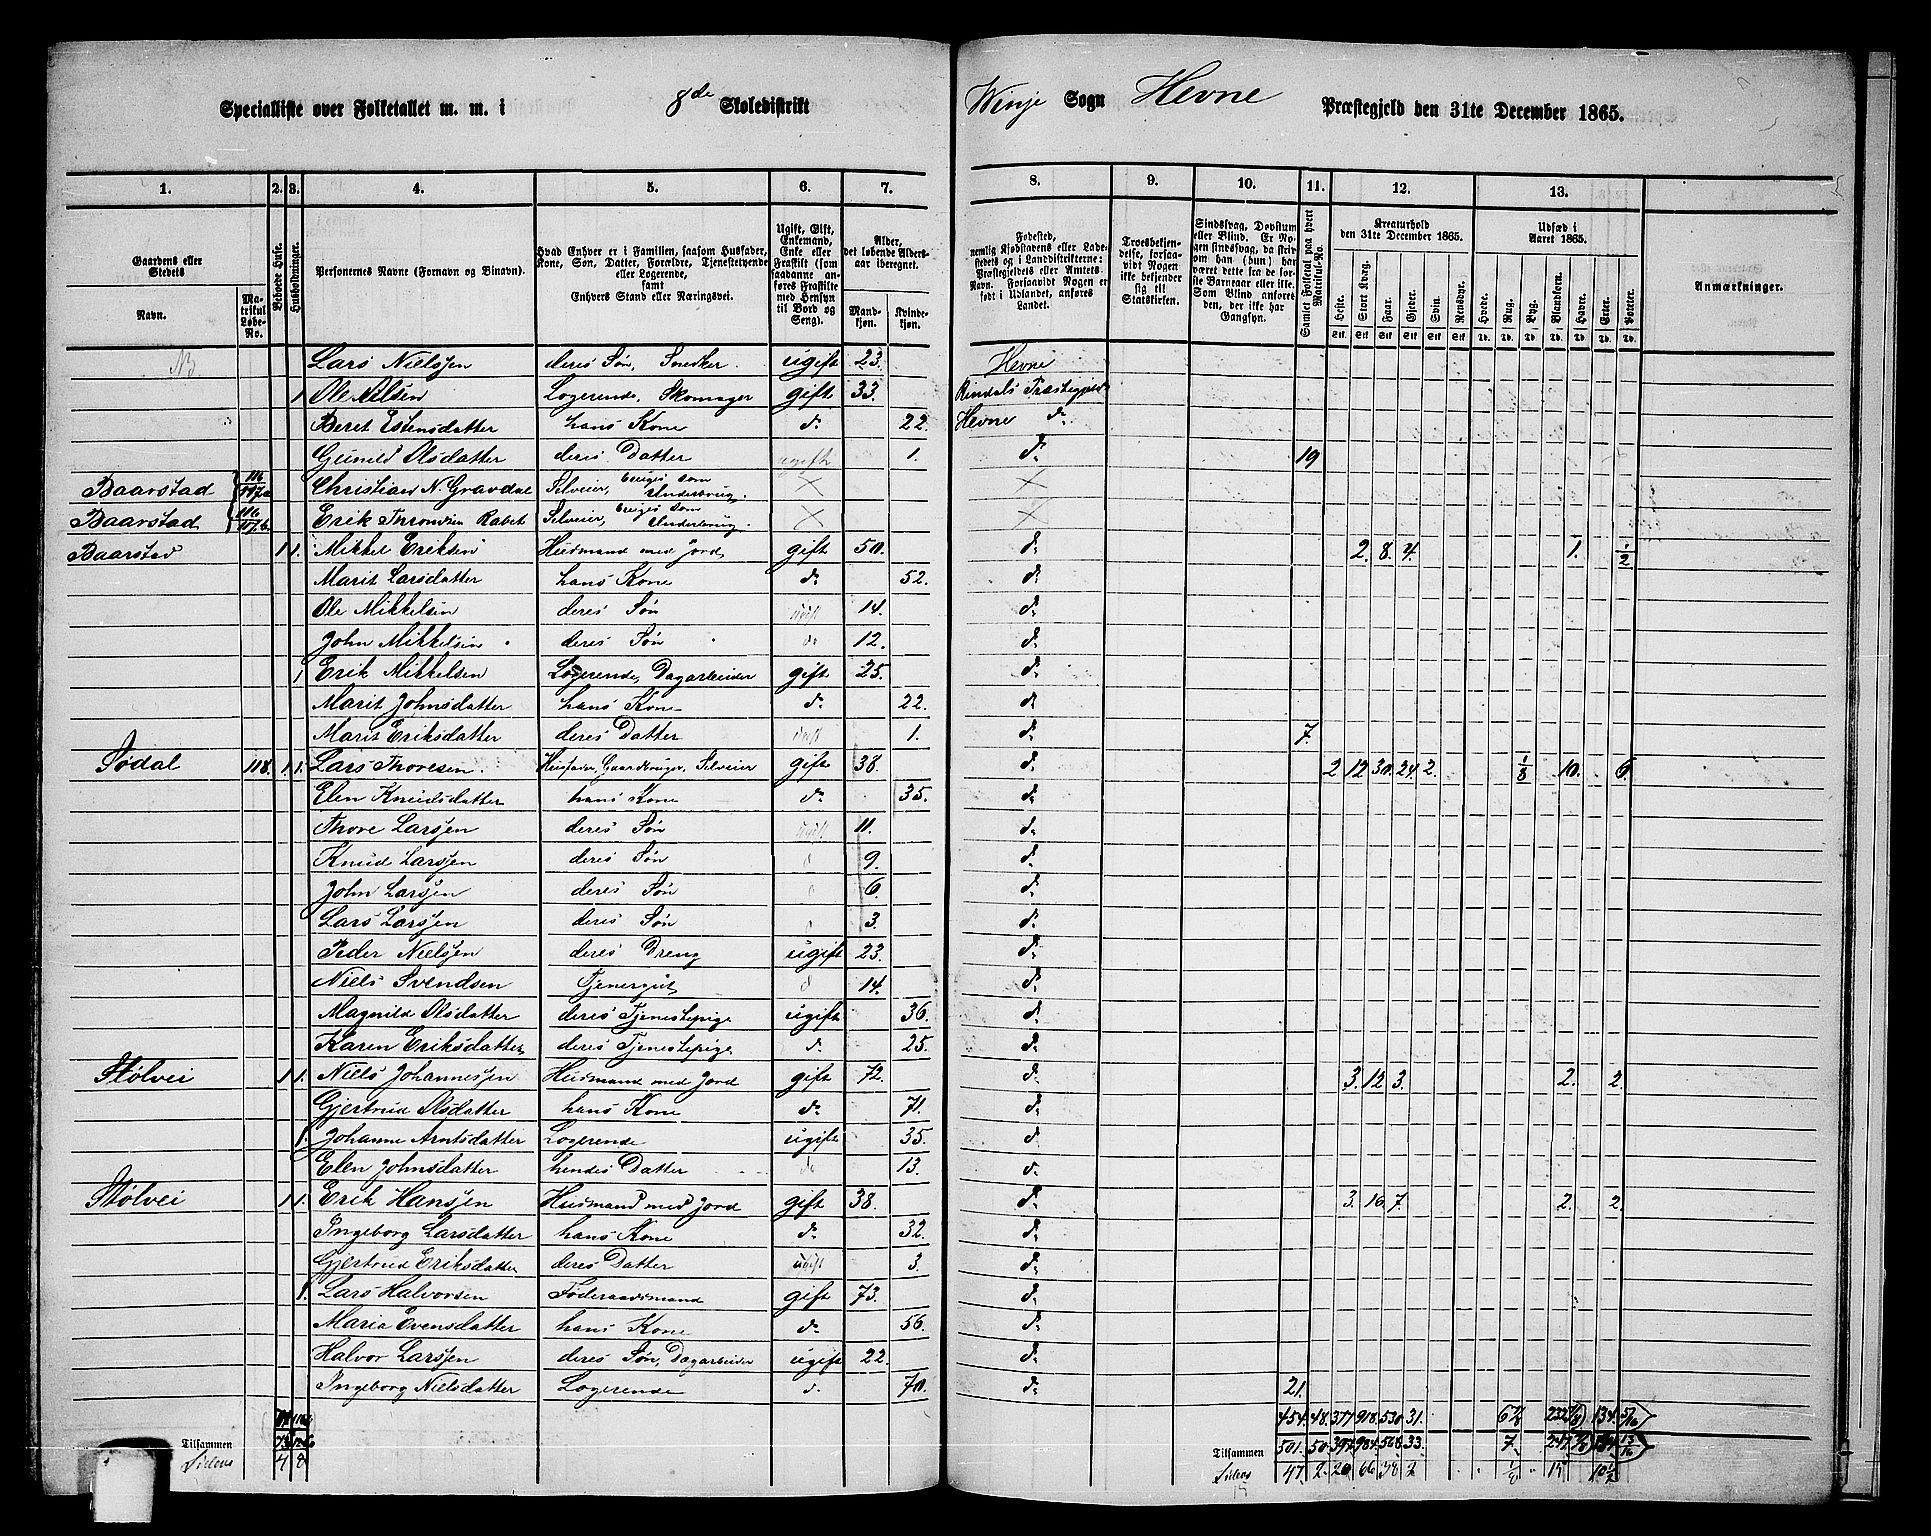 Specialliste over Folketallet m. m. i 8de Skoledistrikt Winje Sogn Hevne Præstegjeld den 31te December 1865.
1. 2. 3. 4. 5. 6. 7. 8. 9. 10. 11. 12. 13.
Gaardens eller Stedets
Navn.
Matrikul Løbe-No.
Beboede Huse.
Husholdninger.
Personernes Navne (Fornavn og Binavn).
Hvad Enhver er i Familien, saasom Husfader, Kone, Søn, Datter, Forældre, Tjenestetyende eller Logerende, samt Enhvers Stand eller Næringsvei.
Ugift, Gift, Enkemand, Enke eller Fraskilt (som saadanne anføres Fraskilte med Hensyn til Bord og Seng).
Alder, det løbende Aldersaar iberegnet.
Mandkjøn. Kvindekjøn.
Fødested, nemlig Kjøbstadens eller Ladestedets og i Landdistrikterne: Præstegjeldets eller Amtets Navn. Forsaavidt Nogen er født i Udlandet, anføres Landet.
Troesbekjendelse, forsaavidt Nogen ikke bekjender sig til Statskirken.
Sindssvag, Døvstum eller Blind. Er Nogen sindssvag, da skrives om han (hun) har været dette fra de første Barneaar eller ikke. Som Blind anføres den, der ikke har Gangsyn.
Samlet Folketal paa hvert Matrikul-No.
Kreaturhold den 31te December 1865.
Heste. Stort Kvæg. Faar. Gjeder. Svin. Rensdyr.
Udsæd i Aaret 1865.
Hvede. Rug. Byg. Blandkorn. Havre. Erter. Poteter.
Anmærkninger.
Lars Nielsen deres Søn, Snedker ugift 23. Hevne
1 Ole Olsen Logerende, Skomager gift 33. Rindals Præstegjeld
Beret Estensdatter hans Kone d. 22. Hevne d.
Gunild Olsdatter deres Datter ugift 1. d. 19
Baarstad 116 117a Christian N. Gravdal Selveier, bruges som Underbrug. × ×
Baarstad 116 117b Erik Thronsen Rabet Selveier, bruges som Underbrug. × ×
Baarstad 1 1. Mikkel Eriksen Husmand med Jord gift 50. d. 2. 8. 4. 1. 1/2
Marit Larsdatter hans Kone d. 52. d.
Ole Mikkelsen deres Søn ugift 14. d.
John Mikkelsen deres Søn do 12. d.
1 Erik Mikkelsen Logerende, Dagarbeider gift 25. d.
Marit Johnsdatter hans Kone d. 22. d.
Marit Eriksdatter deres Datter ugift 1. d. 7.
Sødal 118. 1 1. Lars Thoresen. Husfader, Gaardbruger, Selveier gift 38. d. 2 12 30. 24. 2. 1/8 10. 6.
Elen Knudsdatter hans Kone d. 35. d.
Thore Larsen deres Søn ugift 11. d.
Knud Larsen deres Søn d 9. d.
John Larsen deres Søn d 6. d.
Lars Larsen deres Søn d 3. d.
Peder Nielsen deres Dreng ugift 23. d.
Niels Svendsen Tjenergut d 14. d.
Magnild Olsdatter deres Tjenestepige ugift 36. d.
Karen Eriksdatter deres Tjenestepige d. 25. d.
Stølvei 1 1. Niels Johannesen Husmand med Jord gift 72. d. 3. 12 3. 2. 2.
Gjertrud Olsdatter hans Kone d. 71. d.
1. Johanne Arntsdatter Logerende ugift 35. d.
Elen Johnsdatter hendes Datter do 13. d.
Stølvei 1 1. Erik Hansen Husmand med Jord gift 38. d. 3. 16 7. 2. 2.
Ingeborg Larsdatter hans Kone d. 32. d.
Gjertrud Eriksdatter deres Datter ugift 3. d.
1. Lars Halvorsen Føderaadsmand gift 73. d.
Maria Evensdatter hans Kone d. 56. d.
Halvor Larsen deres Søn, Dagarbeider ugift 22. d.
Ingeborg Nielsdatter Logerende d. 70. d. 21.
454. 48. 377 918. 530 31. 6 7/8 134.
Tilsammen Tilsammen 501. 50. 397 984. 568. 33. 7
Sidens 4 8 Sidens 47. 2. 20 66 38 2 1/8 15 10 1/2